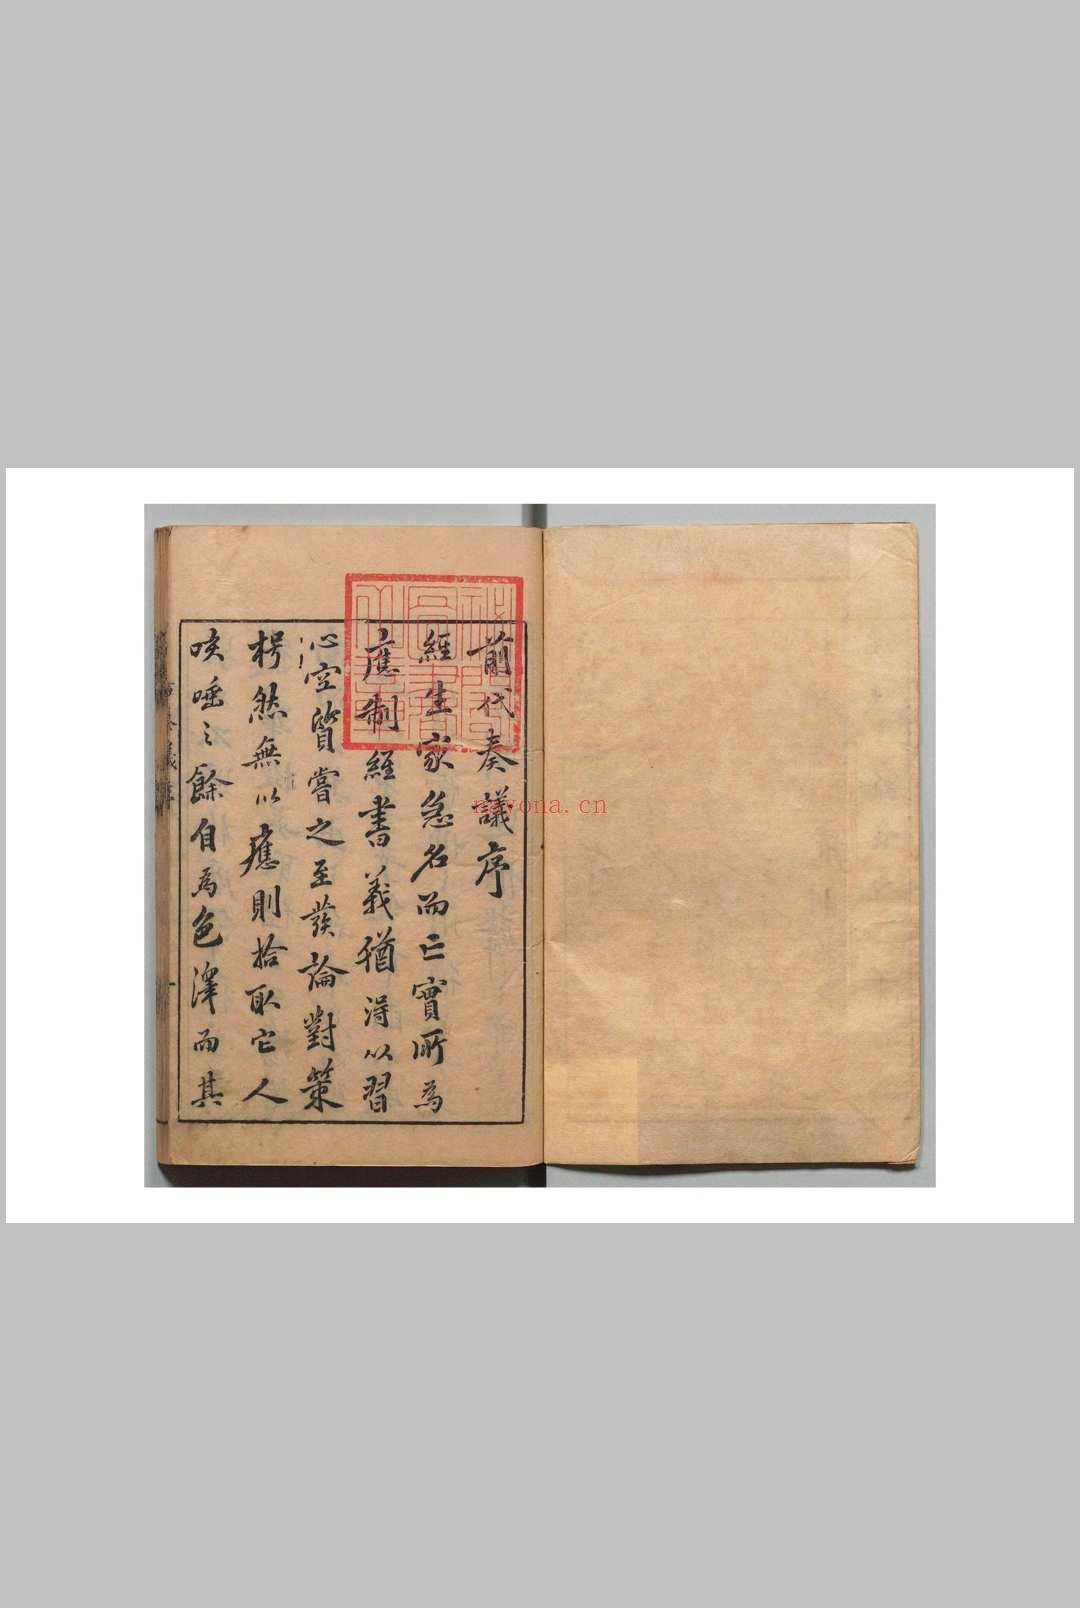 前代奏議序
經生家急名而亡實所為
應制經書義猶得以習
心空質嘗之至發論對策
枵然無以應則拾取它人
咳唾之餘自為色澤而其
nayona.cn